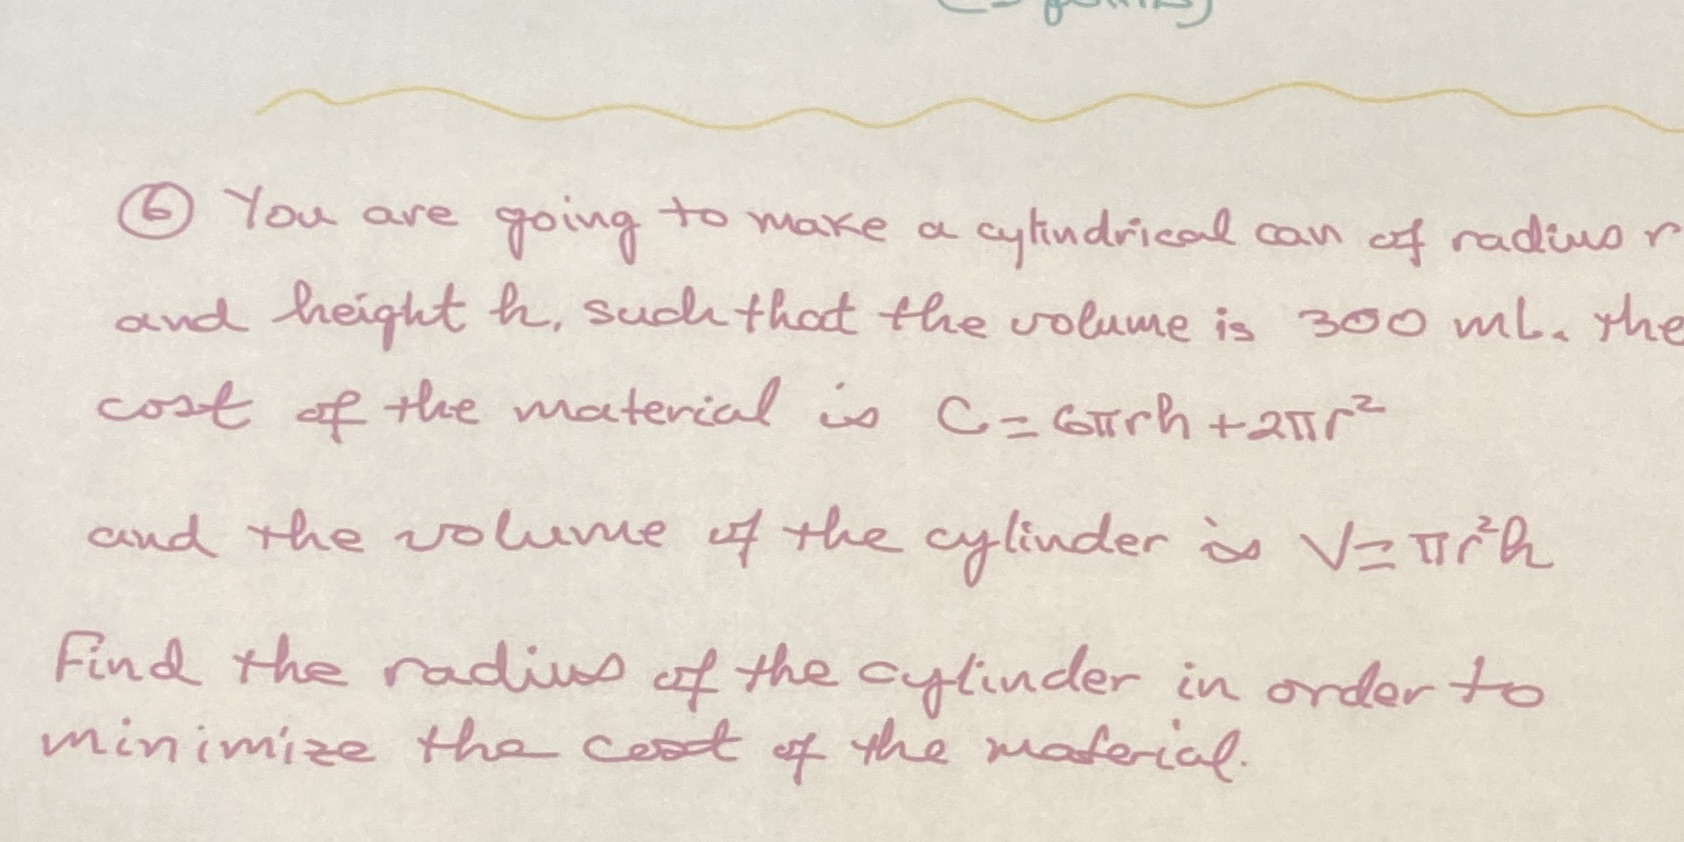 ⑥ You are going to make a cylindrical can of radius r
and height h, such that the volume is 300 mL. the
cost of the material is C = 6πrh + 2πr²
and the volume of the cylinder is V = πr²h
Find the radius of the cylinder in order to
minimize the cost of the material.